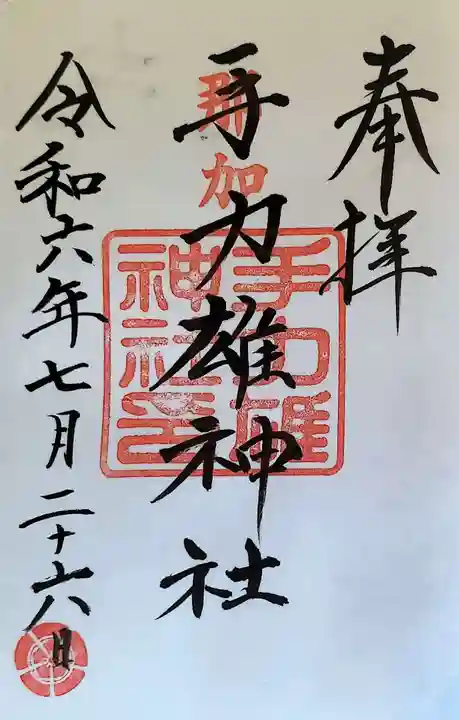 奉拝
那加
手力雄神社
手力雄神社印
令和六年七月二十六日